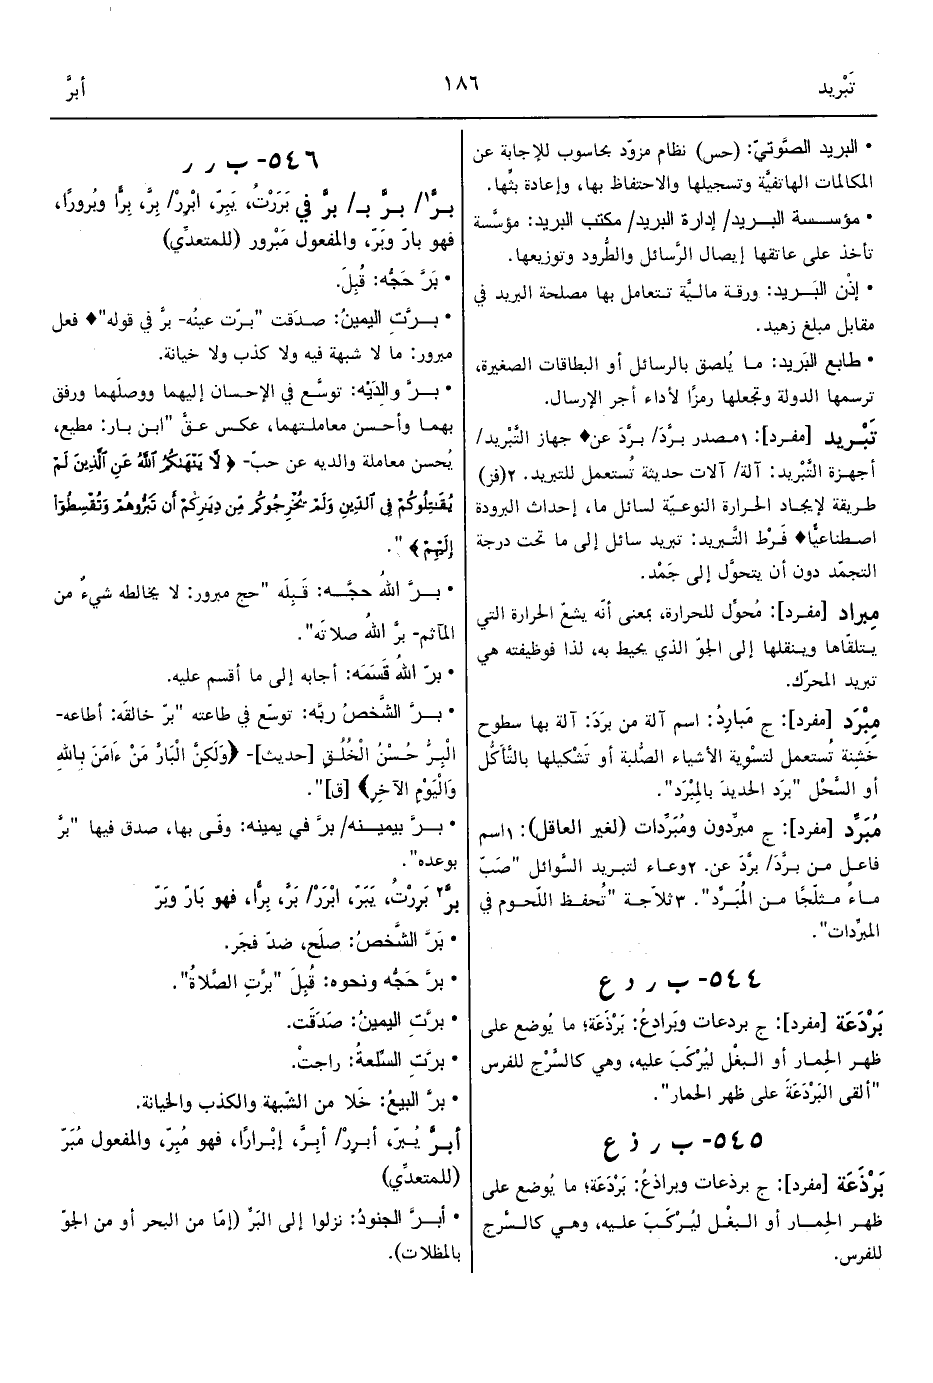 تَبْريد
١٨٦
أبرَّ
• البريد الصَّوتيّ: (حس) نظام مزوّد بحاسوب للإجابة عن
المكالمات الهاتفيَّة وتسجيلها والاحتفاظ بها، وإعادة بثِّها.
• مؤسسة البريد/ إدارة البريد/ مكتب البريد: مؤسَّسة
تأخذ على عاتقها إيصال الرَّسائل والطُّرود وتوزيعها.
• إذْن البَريد: ورقة ماليَّة تتعامل بها مصلحة البريد في
مقابل مبلغ زهيد.
• طابع البَريد: ما يُلصق بالرسائل أو البطاقات الصغيرة،
ترسمها الدولة وتجعلها رمزًا لأداء أجر الإرسال.
تَبْريد [مفرد]: ١مصدر برَّدَ/ برَّدَ عن♦ جهاز التَّبْريد/
أجهزة التَّبْريد: آلة/ آلات حديثة تُستعمل للتبريد. ٢(فز)
طريقة لإيجاد الحرارة النوعيّة لسائل ما، إحداث البرودة
اصطناعيًّا♦ فَرْط التَّبريد: تبريد سائل إلى ما تحت درجة
التجمّد دون أن يتحوَّل إلى جَمْد.
مِبراد [مفرد]: مُحوَّل للحرارة، بمعنى أنّه يشعّ الحرارة التي
يتلقّاها وينقلها إلى الجوّ الذي يحيط به، لذا فوظيفته هي
تبريد المحرّك.
مِبْرَد [مفرد]: ج مَبارِدُ: اسم آلة من بَرَدَ: آلة بها سطوح
خشنة تُستعمل لتسوية الأشياء الصُّلبة أو تَشْكيلها بالتَّآكُل
أو السَّحْل "برَد الحديدَ بالمِبْرَد".
مُبَرِّد [مفرد]: ج مبرِّدون ومُبَرِّدات (لغير العاقل): ١اسم
فاعل من برَّدَ/ برَّدَ عن. ٢وعاء لتبريد السَّوائل "صَبّ
ماءً مثلّجًا من المُبَرِّد". ٣ثلاّجة "تُحفظ اللّحوم في
المبرِّدات".
٥٤٤- ب ر د ع
بَرْدَعَة [مفرد]: ج بردعات وبَرادعُ: بَرْذَعَة؛ ما يُوضع على
ظهر الحِمار أو البغْل ليُرْكَبَ عليه، وهي كالسَّرْج للفرس
"ألقى البَرْدَعَةَ على ظهر الحمار".
٥٤٥- ب ر ذ ع
بَرْذَعَة [مفرد]: ج برذعات وبراذعُ: بَرْدَعَة؛ ما يُوضع على
ظهر الحِمار أو البغْل ليُرْكَبَ عليه، وهي كالسَّرج
للفرس.
٥٤٦- ب ر ر
برَّ١/ برَّ بـ/ برَّ في بَرَرْتُ، يَبِرّ، ابْرِرْ/ بِرَّ، بِرًّا وبُرورًا،
فهو بارّ وبَرّ، والمفعول مَبْرور (للمتعدِّي)
• بَرَّ حَجُّه: قُبِلَ.
• برَّتِ اليمينُ: صدَقت "برّت عينُه- برَّ في قوله"♦ فعل
مبرور: ما لا شبهة فيه ولا كذب ولا خيانة.
• برَّ والدَيْه: توسَّع في الإحسان إليهما ووصلَهما ورفق
بهما وأحسن معاملتهما، عكس عقَّ "ابن بار: مطيع،
يُحسن معاملة والديه عن حبّ- ﴿ لَا يَنْهَىٰكُمُ ٱللَّهُ عَنِ ٱلَّذِينَ لَمْ
يُقَٰتِلُوكُمْ فِي ٱلدِّينِ وَلَمْ يُخْرِجُوكُم مِّن دِيَٰرِكُمْ أَن تَبَرُّوهُمْ وَتُقْسِطُوٓا۟
إِلَيْهِمْ ﴾ ".
• برَّ اللهُ حجَّه: قَبِلَه "حج مبرور: لا يخالطه شيءٌ من
المآثم- برَّ اللهُ صلاتَه".
• برّ اللهُ قَسَمَه: أجابه إلى ما أقسم عليه.
• برَّ الشَّخصُ ربَّه: توسَّع في طاعته "برّ خالقَه: أطاعه-
الْبِرُّ حُسْنُ الْخُلُقِ [حديث]- ﴿وَلَكِنَّ الْبَارَّ مَنْ ءَامَنَ بِاللهِ
وَالْيَوْمِ الآخِرِ﴾ [ق]".
• برَّ بيمينه/ برَّ في يمينه: وفَّى بها، صدق فيها "برَّ
بوعده".
برَّ٢ بَرِرْتُ، يَبَرّ، ابْرَرْ/ بَرَّ، بِرًّا، فهو بَارّ وبَرّ
• بَرَّ الشَّخصُ: صلَح، ضدّ فجَر.
• برَّ حَجُّه ونحوه: قُبِلَ "برَّتِ الصَّلاةُ".
• برَّتِ اليمينُ: صَدَقَت.
• برَّتِ السِّلعةُ: راجتْ.
• برَّ البيعُ: خَلَا من الشّبهة والكذب والخيانة.
أبرَّ يُبرّ، أبرِرْ/ أبِرَّ، إبْرارًا، فهو مُبِرّ، والمفعول مُبَرّ
(للمتعدِّي)
• أبرَّ الجنودُ: نزلوا إلى البَرِّ (إمّا من البحر أو من الجوّ
بالمظلات).